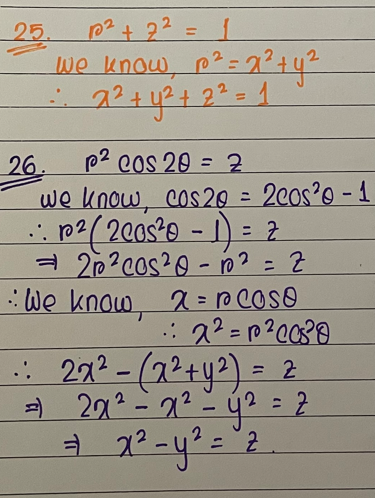 25. r² + z² = 1
We know, r² = x² + y²
∴ x² + y² + z² = 1
26. r² cos 2θ = z
we know, cos2θ = 2cos²θ - 1
∴ r² (2cos²θ - 1) = z
⇒ 2r²cos²θ - r² = z
∴ We know, x = r cosθ
∴ x² = r²cos²θ
∴ 2x² - (x² + y²) = z
⇒ 2x² - x² - y² = z
⇒ x² - y² = z.